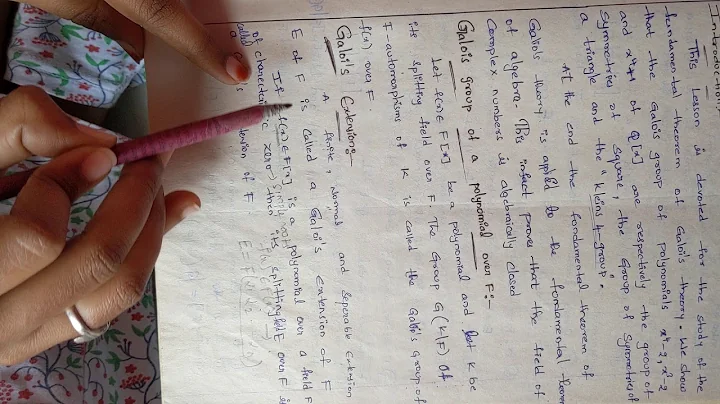 Introduction
This lesson is devoted for the study of
fundamental theorem of Galois theory. We show
that the Galois group of polynomials x⁴-2, x³-2
and x⁴+1 of Q[x] are respectively the group of
symmetries of square, the Group of Symmetries of
a triangle and the "Kleins 4-group".
At the end the fundamental theorem of
Galois theory is applied to the fundamental
of algebra. This infact proves that the field of
complex numbers is algebraically closed
Galois group of a polynomial over F:-
Let f(x) ∈ F[x] be a polynomial and let K be
its splitting field over F. The Group G(K|F) of
F-automorphisms of K is called the Galois Group of
f(x) over F.
Galoi's Extension:-
A finite, Normal and Seperable Extension
E of F is called a Galoi's extension of F
If f(x) ∈ F[x] is a polynomial over a field F
of zero then its splitting field E over F is
called of F